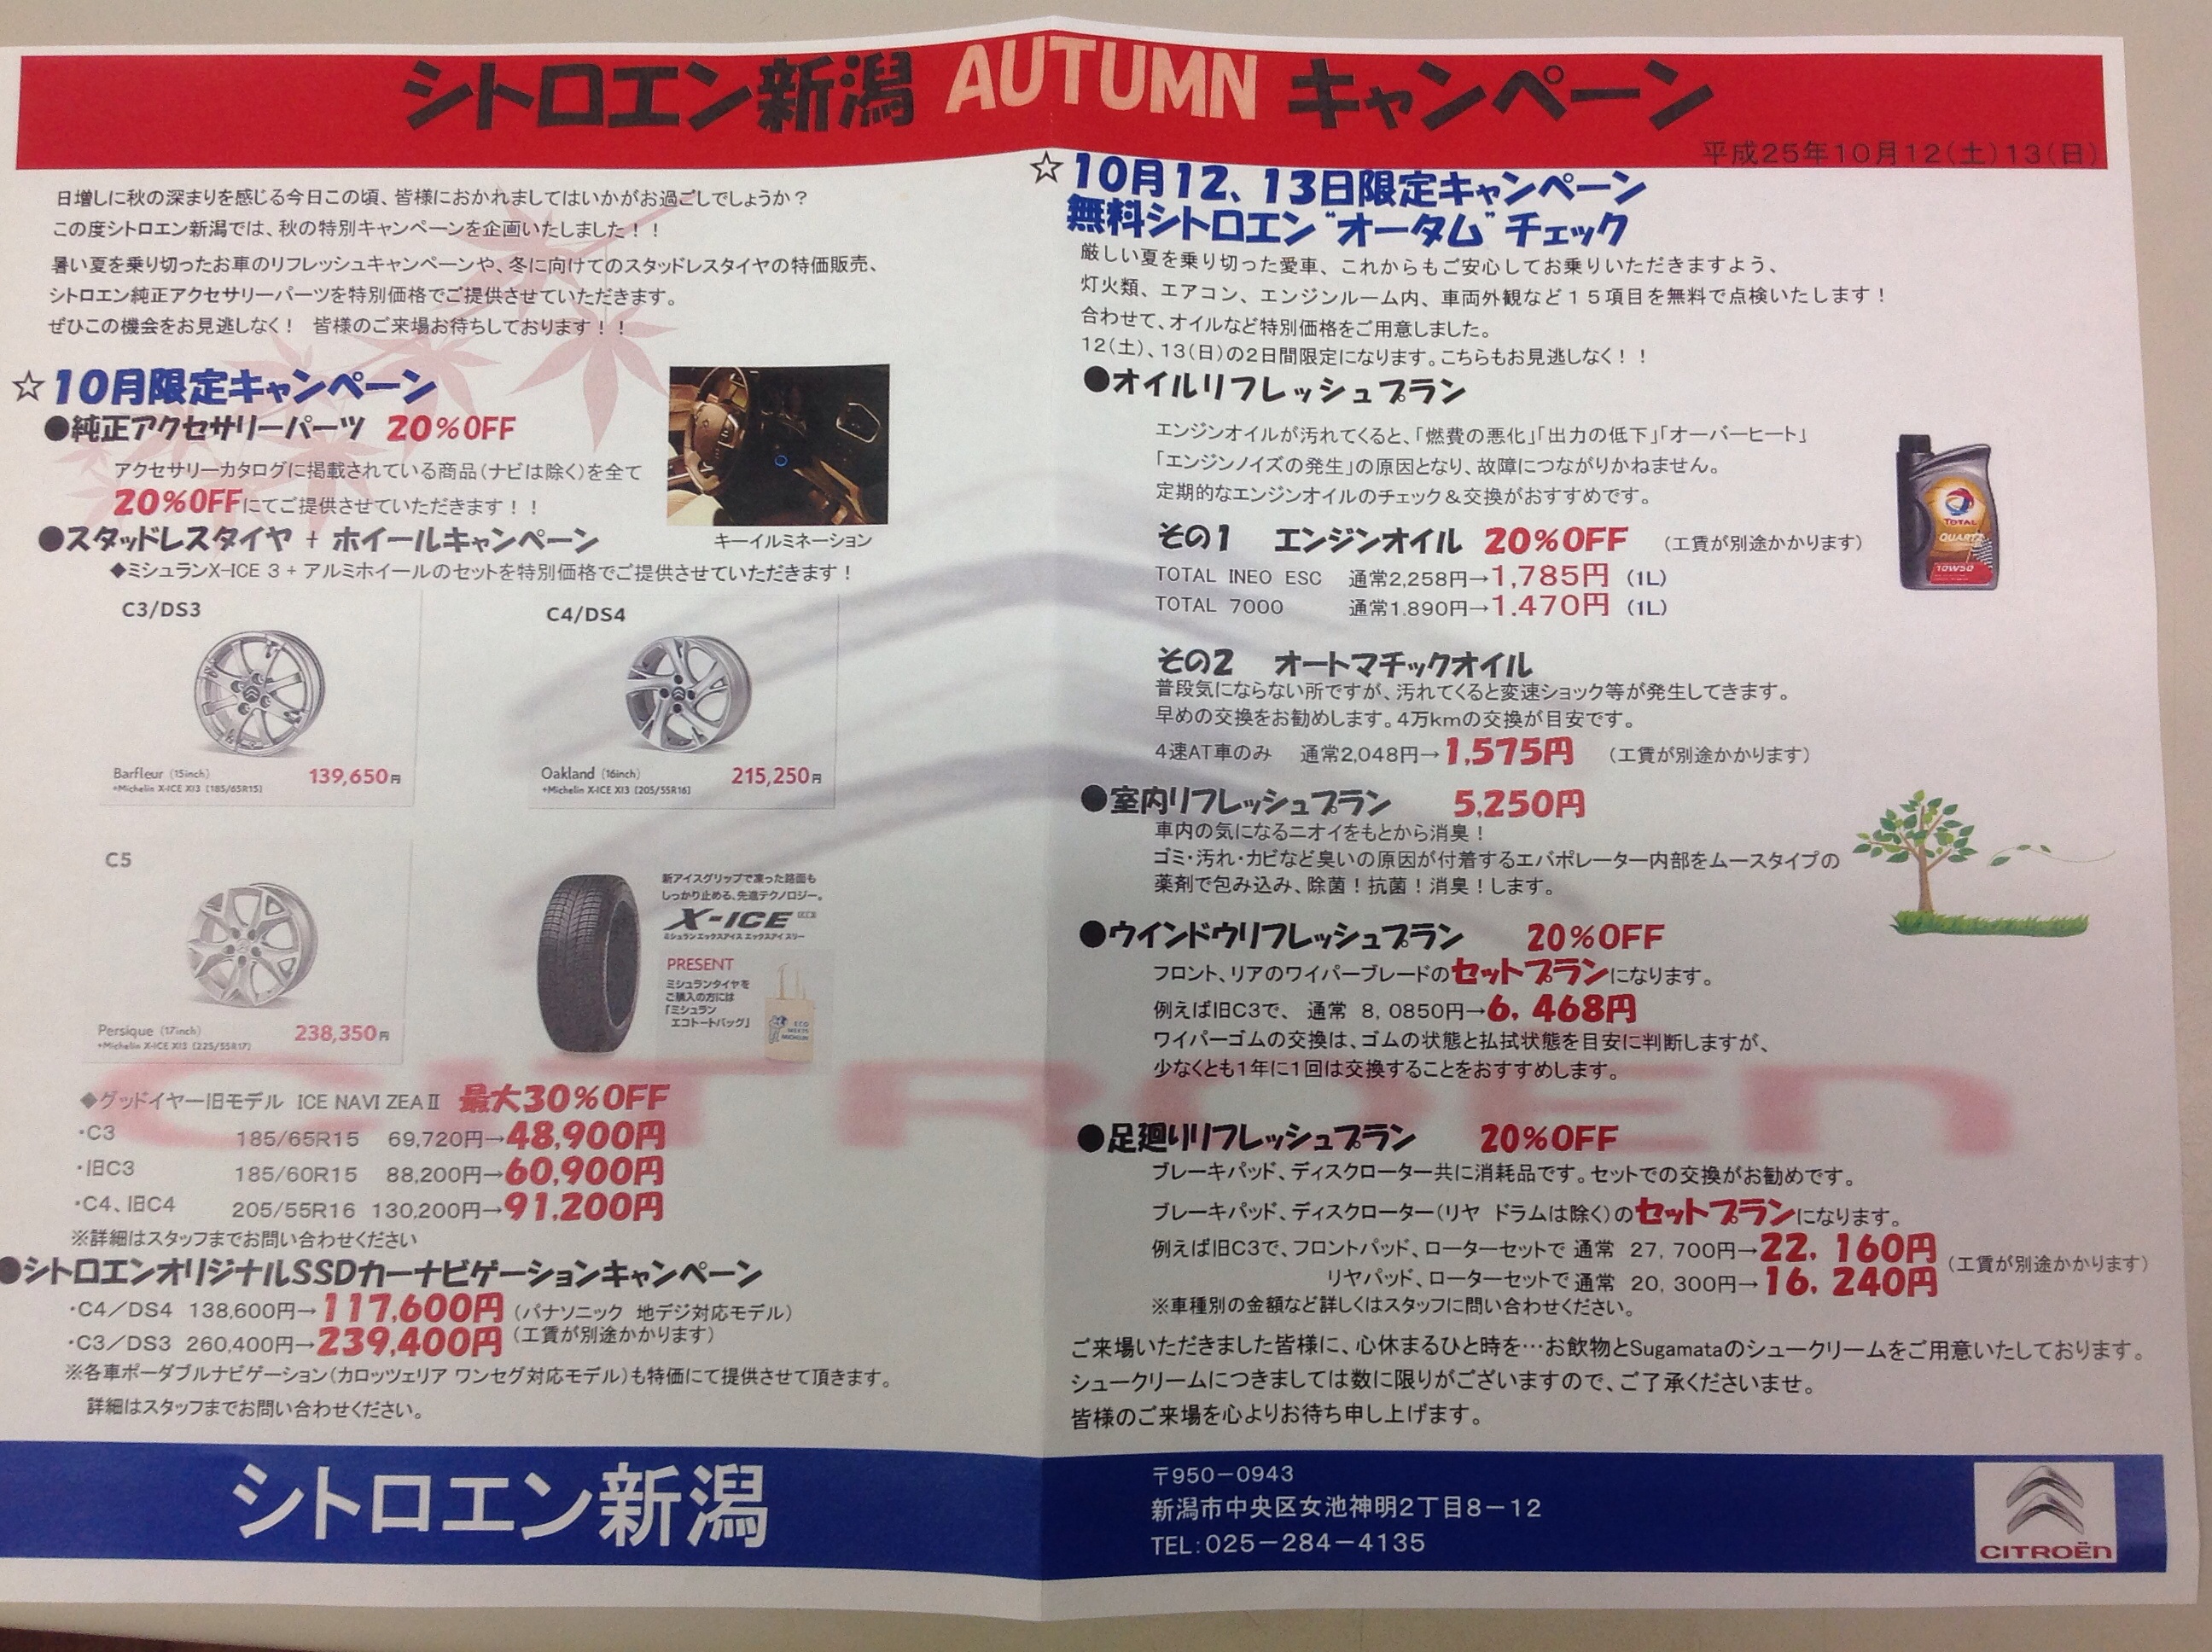 シトロエン新潟 AUTUMN キャンペーン
平成25年10月12(土)13(日)
日増しに秋の深まりを感じる今日この頃、皆様におかれましてはいかがお過ごしでしょうか?
この度シトロエン新潟では、秋の特別キャンペーンを企画いたしました!!
暑い夏を乗り切ったお車のリフレッシュキャンペーンや、冬に向けてのスタッドレスタイヤの特価販売、
シトロエン純正アクセサリーパーツを特別価格でご提供させていただきます。
ぜひこの機会をお見逃しなく! 皆様のご来場お待ちしております!!
☆10月限定キャンペーン
●純正アクセサリーパーツ 20%OFF
アクセサリーカタログに掲載されている商品(ナビは除く)を全て
20%OFFにてご提供させていただきます!!
キーイルミネーション
●スタッドレスタイヤ + ホイールキャンペーン
◆ミシュランX-ICE 3 + アルミホイールのセットを特別価格でご提供させていただきます!
C3/DS3
Barfleur (15inch) 139,650円
+Michelin X-ICE XI3 [185/65R15]
C4/DS4
Oakland (16inch) 215,250円
+Michelin X-ICE XI3 [205/55R16]
C5
Persique (17inch) 238,350円
+Michelin X-ICE XI3 [225/55R17]
新アイスグリップで凍った路面も
しっかり止める、先進テクノロジー。
X-ICE XI3
ミシュランエックスアイス エックスアイスリー
PRESENT
ミシュランタイヤを
ご購入の方には
「ミシュラン
エコトートバッグ」
◆グッドイヤー旧モデル ICE NAVI ZEAⅡ 最大30%OFF
・C3 185/65R15 69,720円→48,900円
・旧C3 185/60R15 88,200円→60,900円
・C4、旧C4 205/55R16 130,200円→91,200円
※詳細はスタッフまでお問い合わせください
●シトロエンオリジナルSSDカーナビゲーションキャンペーン
・C4/DS4 138,600円→117,600円 (パナソニック 地デジ対応モデル)
・C3/DS3 260,400円→239,400円 (工賃が別途かかります)
※各車ポーダブルナビゲーション(カロッツェリア ワンセグ対応モデル)も特価にて提供させて頂きます。
詳細はスタッフまでお問い合わせください。
☆10月12、13日限定キャンペーン
無料シトロエン"オータム"チェック
厳しい夏を乗り切った愛車、これからもご安心してお乗りいただきますよう、
灯火類、エアコン、エンジンルーム内、車両外観など15項目を無料で点検いたします!
合わせて、オイルなど特別価格をご用意しました。
12(土)、13(日)の2日間限定になります。こちらもお見逃しなく!!
●オイルリフレッシュプラン
エンジンオイルが汚れてくると、「燃費の悪化」「出力の低下」「オーバーヒート」
「エンジンノイズの発生」の原因となり、故障につながりかねません。
定期的なエンジンオイルのチェック&交換がおすすめです。
TOTAL
QUARTZ
10W50
その1 エンジンオイル 20%OFF (工賃が別途かかります)
TOTAL INEO ESC 通常2,258円→1,785円 (1L)
TOTAL 7000 通常1.890円→1.470円 (1L)
その2 オートマチックオイル
普段気にならない所ですが、汚れてくると変速ショック等が発生してきます。
早めの交換をお勧めします。4万kmの交換が目安です。
4速AT車のみ 通常2,048円→1,575円 (工賃が別途かかります)
●室内リフレッシュプラン 5,250円
車内の気になるニオイをもとから消臭!
ゴミ・汚れ・カビなど臭いの原因が付着するエバポレーター内部をムースタイプの
薬剤で包み込み、除菌!抗菌!消臭!します。
●ウインドウリフレッシュプラン 20%OFF
フロント、リアのワイパーブレードのセットプランになります。
例えば旧C3で、 通常 8,0850円→6,468円
ワイパーゴムの交換は、ゴムの状態と払拭状態を目安に判断しますが、
少なくとも1年に1回は交換することをおすすめします。
●足廻りリフレッシュプラン 20%OFF
ブレーキパッド、ディスクローター共に消耗品です。セットでの交換がお勧めです。
ブレーキパッド、ディスクローター(リヤ ドラムは除く)のセットプランになります。
例えば旧C3で、フロントパッド、ローターセットで 通常 27,700円→22,160円
リヤパッド、ローターセットで 通常 20,300円→16,240円 (工賃が別途かかります)
※車種別の金額など詳しくはスタッフに問い合わせください。
ご来場いただきました皆様に、心休まるひと時を…お飲物とSugamataのシュークリームをご用意いたしております。
シュークリームにつきましては数に限りがございますので、ご了承くださいませ。
皆様のご来場を心よりお待ち申し上げます。
CITROËN
シトロエン新潟
〒950-0943
新潟市中央区女池神明2丁目8-12
TEL:025-284-4135
CITROËN